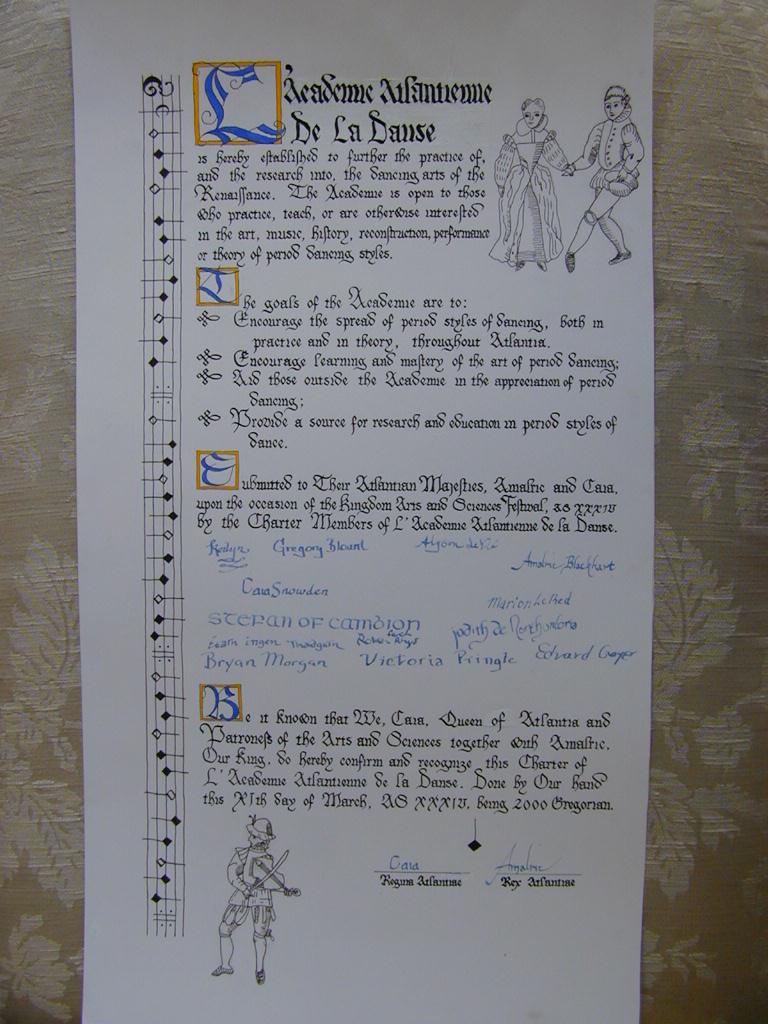 L'Academie Atlantienne
De La Danse
is hereby established to further the practice of,
and the research into, the dancing arts of the
Renaissance. The Academie is open to those
who practice, teach, or are otherwise interested
in the art, music, history, reconstruction, performance
or theory of period dancing styles.
The goals of the Academie are to:
Encourage the spread of period styles of dancing, both in
practice and in theory, throughout Atlantia.
Encourage learning and mastery of the art of period dancing;
Aid those outside the Academie in the appreciation of period
dancing;
Provide a source for research and education in period styles of
dance.
Submitted to Their Atlantian Majesties, Amalric and Cara,
upon the occasion of the Kingdom Arts and Sciences Festival, as XXXIV
by the Charter Members of L'Academie Atlantienne de la Danse.
Gregory Blount
Amalric Blackhart
Cara Snowden
Stefan of Cambion
Judith de Northumbria
Bryan Morgan Victoria Pringle Edward
Be it known that We, Cara, Queen of Atlantia and
Patroness of the Arts and Sciences together with Amalric,
Our King, do hereby confirm and recognize this Charter of
L'Academie Atlantienne de la Danse. Done by Our hand
this XIth day of March, AS XXXIV, being 2000 Gregorian.
Cara Amalric
Regina Atlantiae Rex Atlantiae